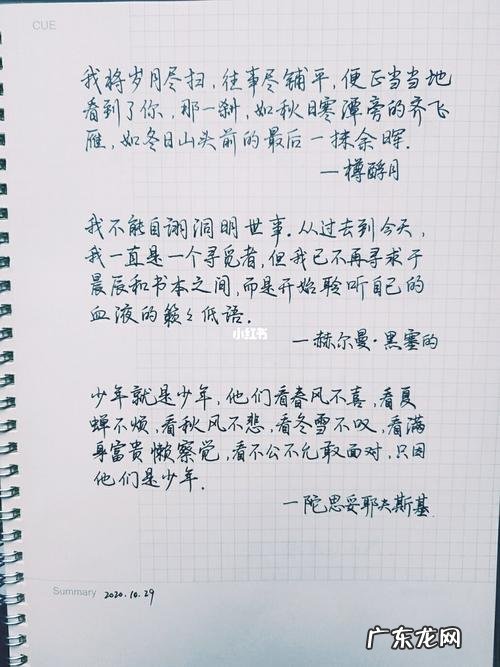 CUE
我将岁月尽扫，往事尽铺平，便正当当地
看到了你，那一刹，如秋日寒潭旁的齐飞
雁，如冬日山头前的最后一抹余晖.
—樽酹月
我不能自诩洞明世事.从过去到今天，
我一直是一个寻觅者，但我已不再寻求于
晨辰和书本之间，而是开始聆听自己的
血液的簌々低语.
小红书
—赫尔曼·黑塞的
少年就是少年，他们看春风不喜，看夏
蝉不烦，看秋风不悲，看冬雪不叹，看满
身富贵懒察觉，看不公不允敢面对，只因
他们是少年.
—陀思妥耶夫斯基.
Summary 2020.10.29
广东龙网